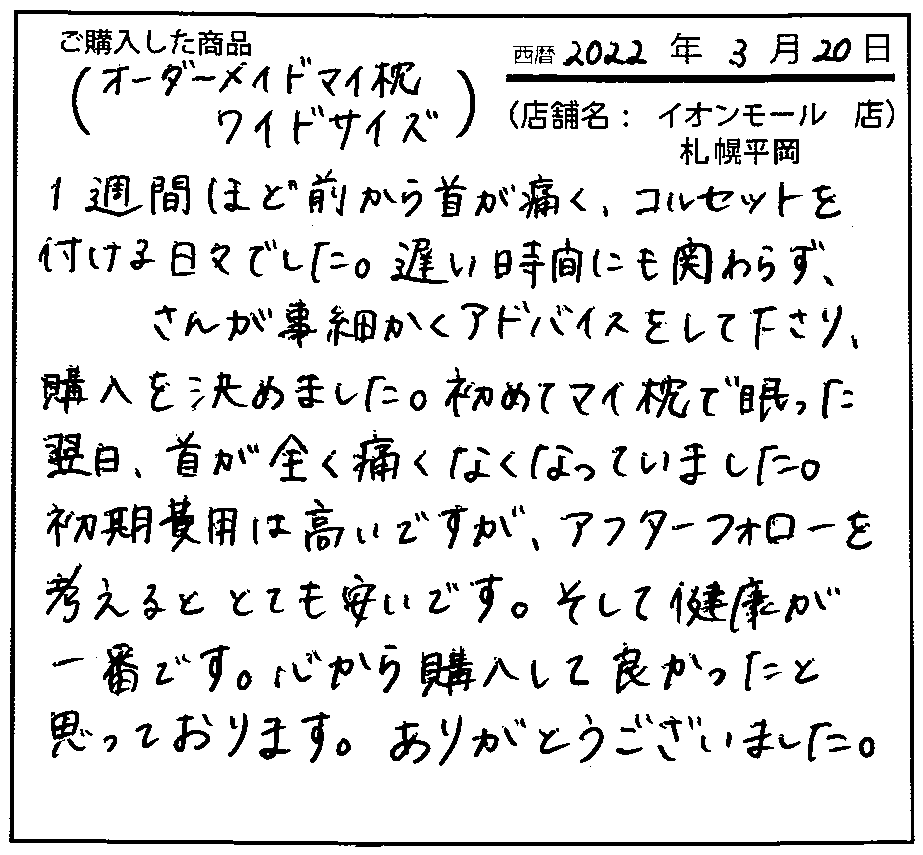 ご購入した商品
(オーダーメイドマイ枕
ワイドサイズ)
西暦 2022 年 3 月 20 日
(店舗名： イオンモール 店)
札幌平岡
1週間ほど前から首が痛く、コルセットを
付ける日々でした。遅い時間にも関わらず、
さんが事細かくアドバイスをして下さり、
購入を決めました。初めてマイ枕で眠った
翌日、首が全く痛くなくなっていました。
初期費用は高いですが、アフターフォローを
考えるととても安いです。そして健康が
一番です。心から購入して良かったと
思っております。ありがとうございました。